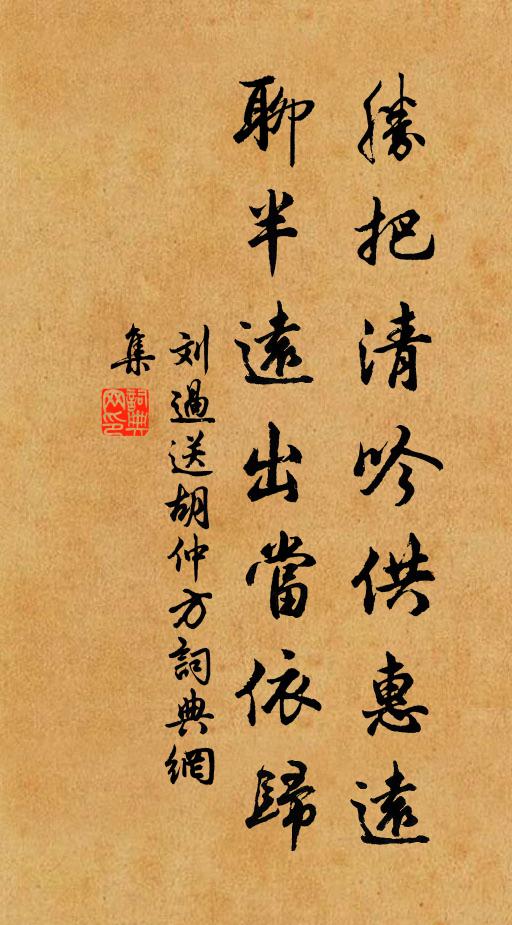 勝把清吟供惠遠
聊半遠出當依歸
刘過送胡仲方詞典網
集
詞典網印